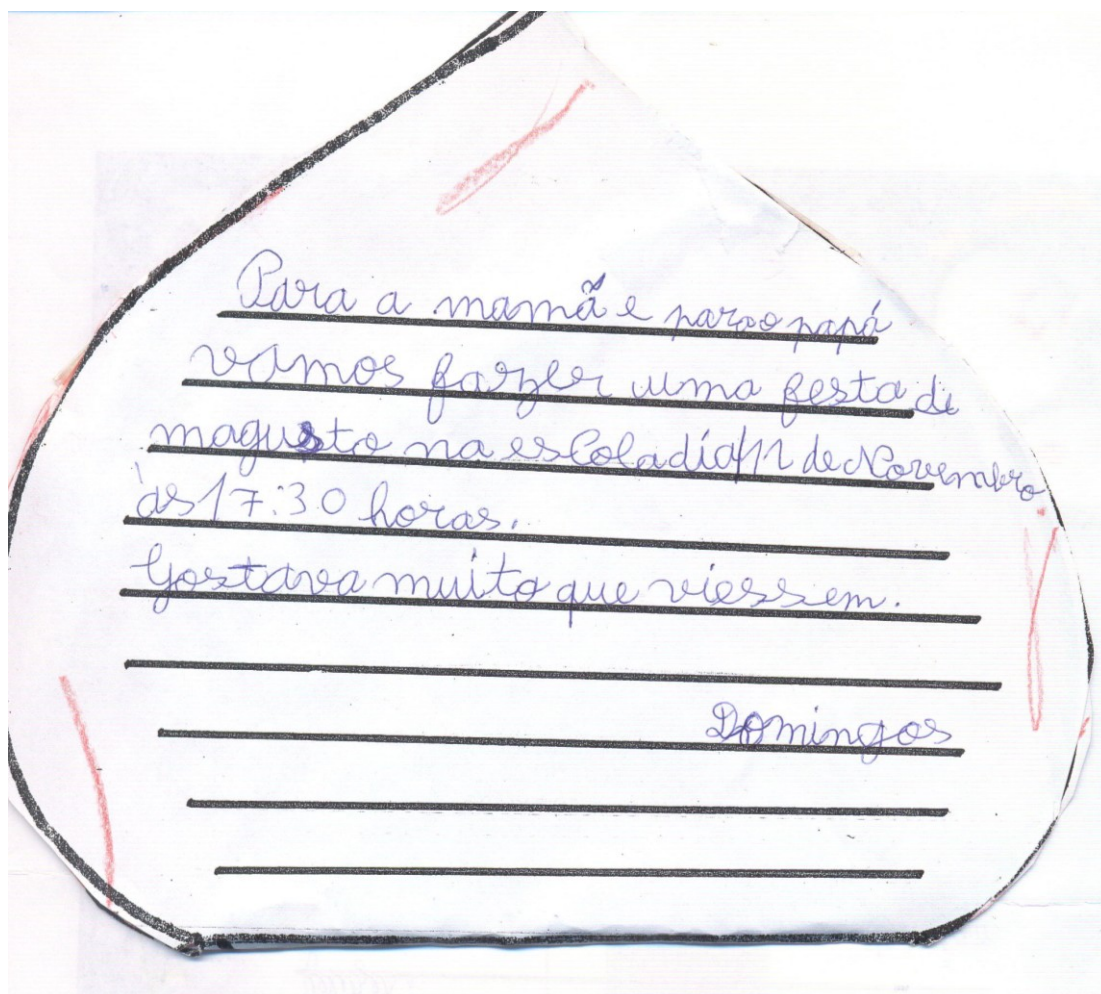 Para a mamã e para o papá
vamos fazer uma festa de
magusto na escola dia 11 de Novembro
às 17:30 horas.
Gostava muito que viessem.
Domingos